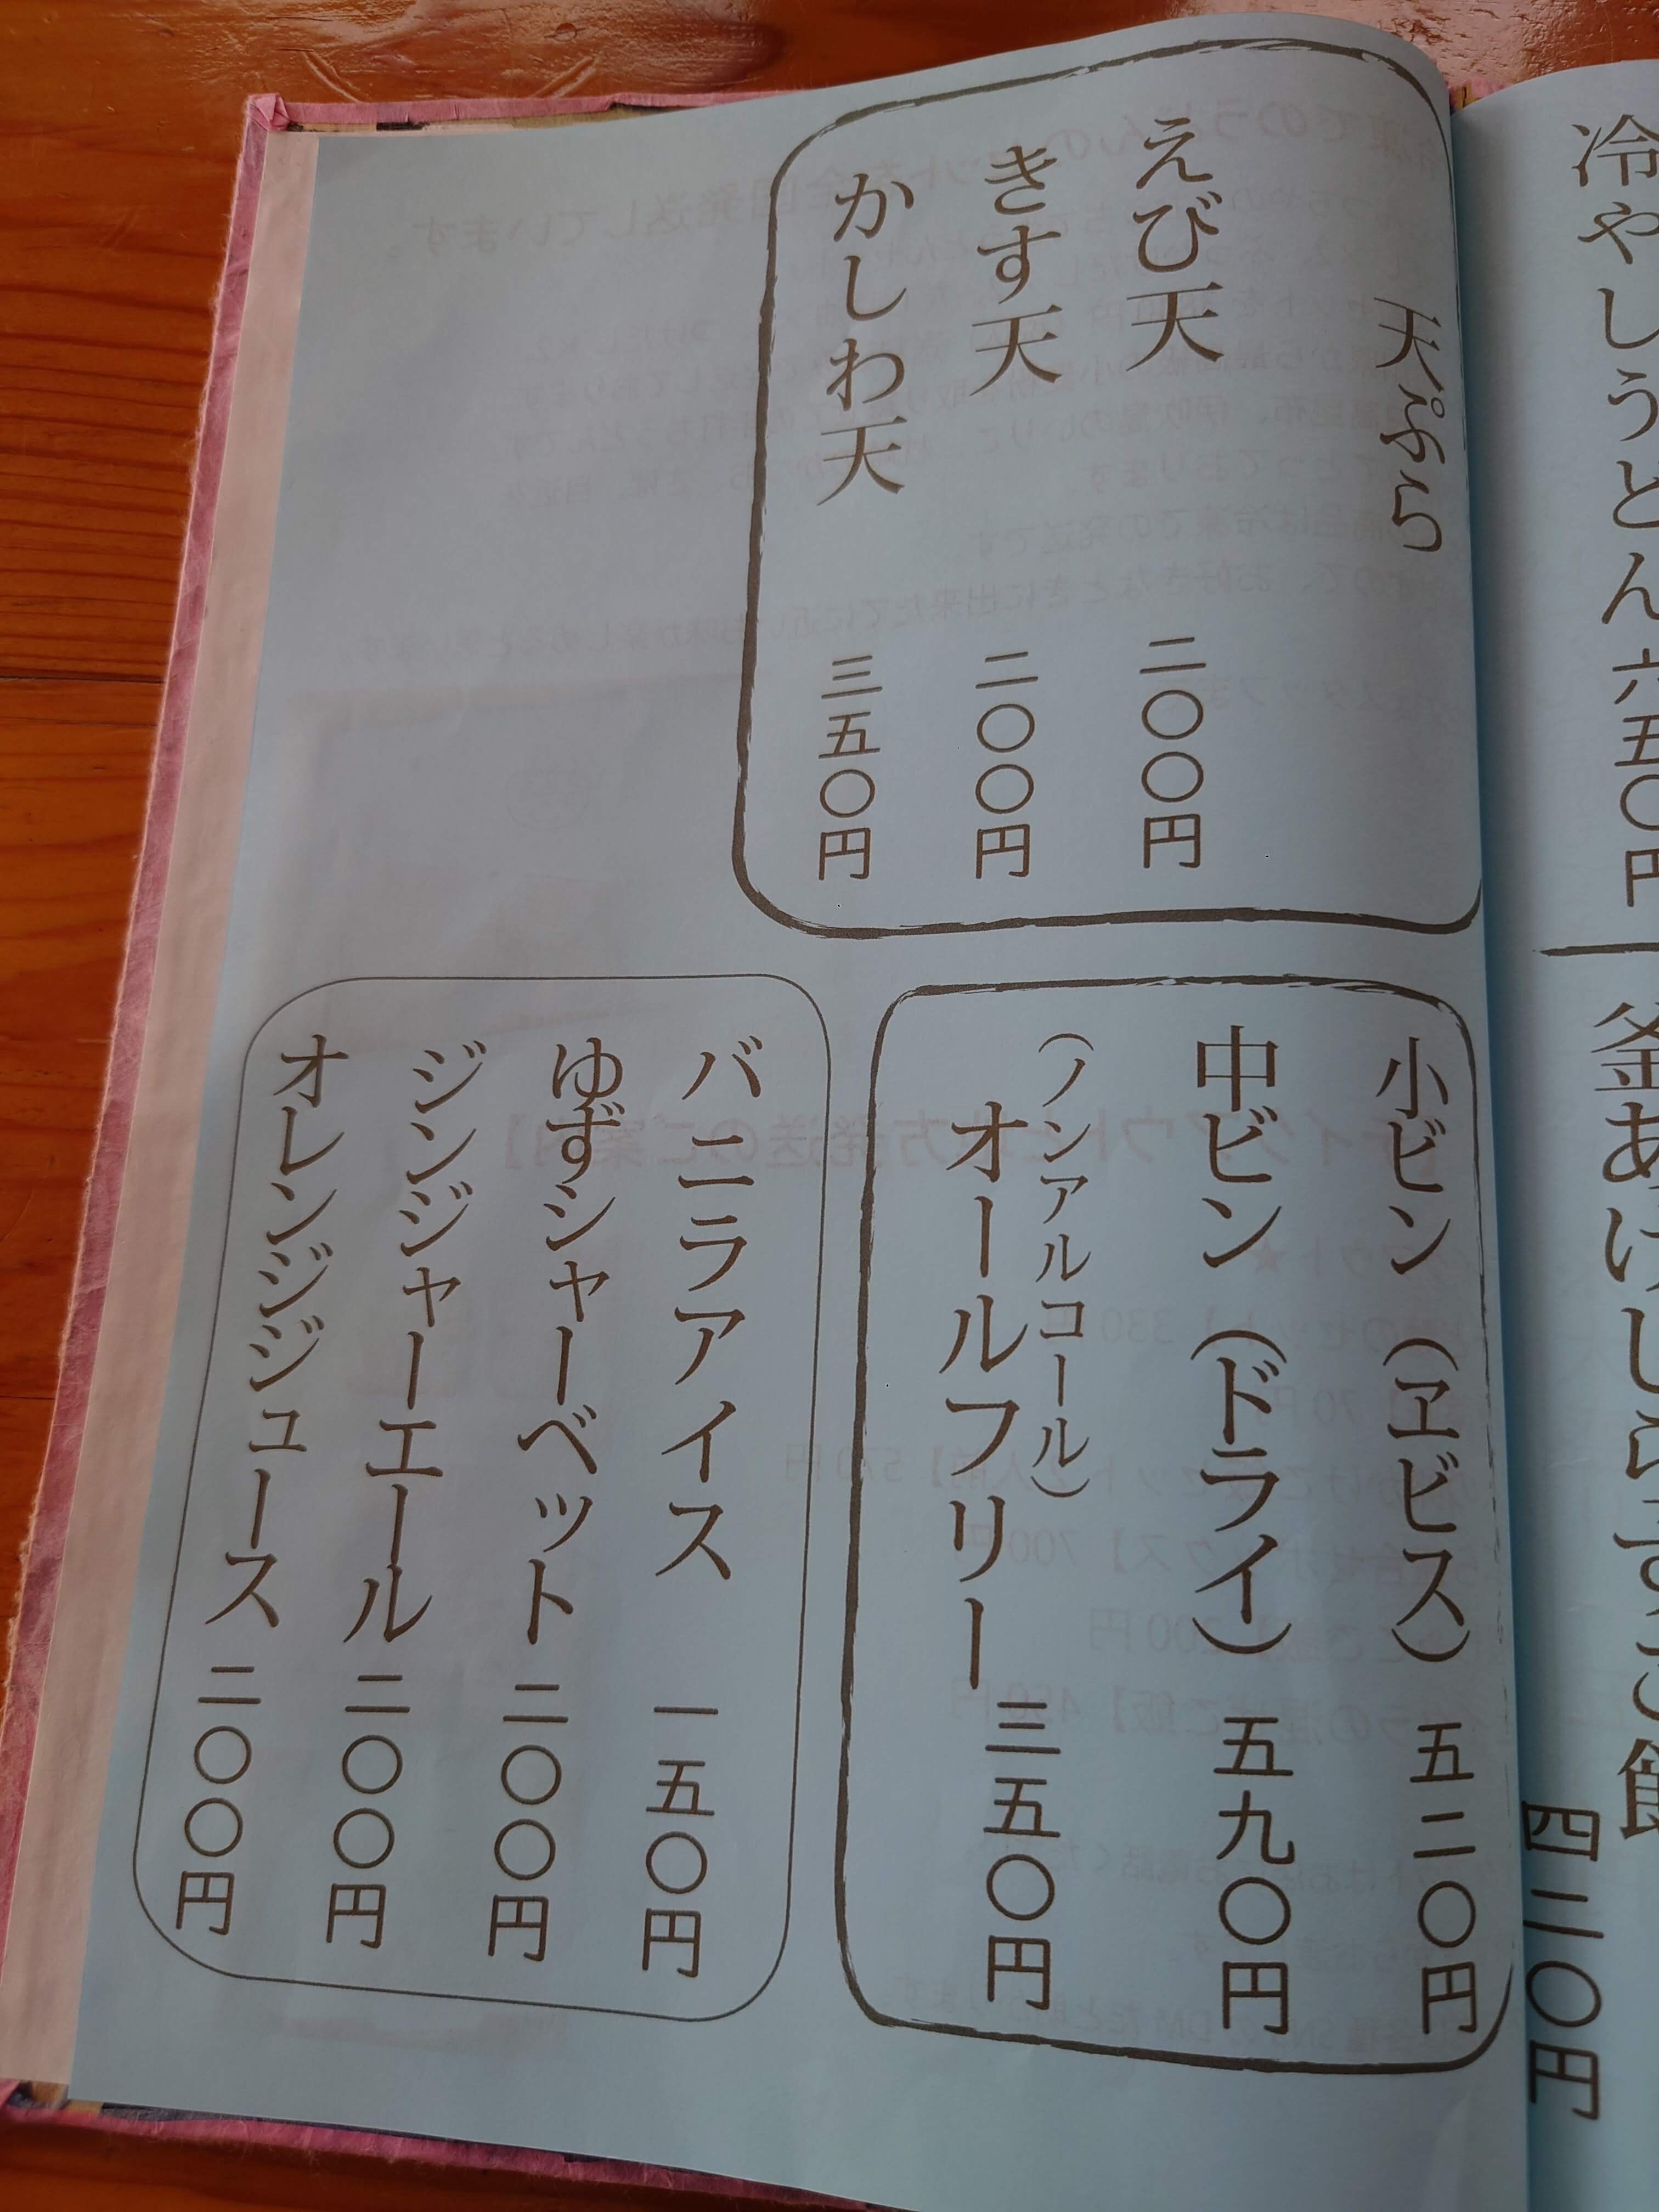 冷やしうどん 六五〇円
釜あげしらすご飯
四二〇円
天ぷら
えび天 二〇〇円
きす天 二〇〇円
かしわ天 三五〇円
小ビン（ヱビス） 五二〇円
中ビン（ドライ） 五九〇円
（ノンアルコール）
オールフリー 三五〇円
バニラアイス 一五〇円
ゆずシャーベット 二〇〇円
ジンジャーエール 二〇〇円
オレンジジュース 二〇〇円